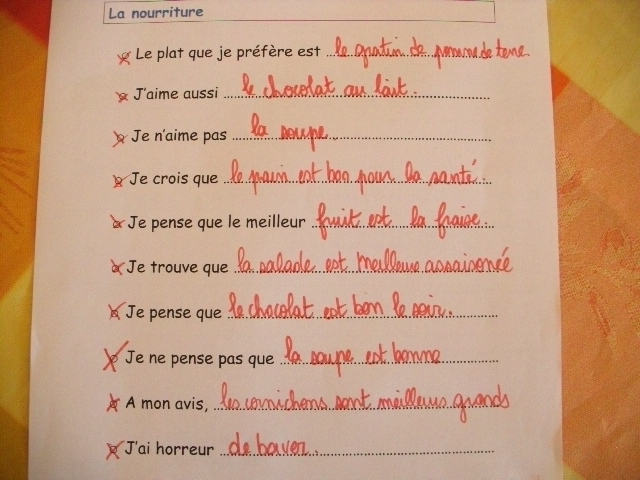 La nourriture
Le plat que je préfère est le gratin de pomme de terre
J'aime aussi le chocolat au lait.
Je n'aime pas la soupe.
Je crois que le pain est bon pour la santé.
Je pense que le meilleur fruit est la fraise.
Je trouve que la salade est meilleure assaisonéé
Je pense que le chocolat est bon le soir.
Je ne pense pas que la soupe est bonne
A mon avis, les cornichons sont meilleurs grands
J'ai horreur de baver.